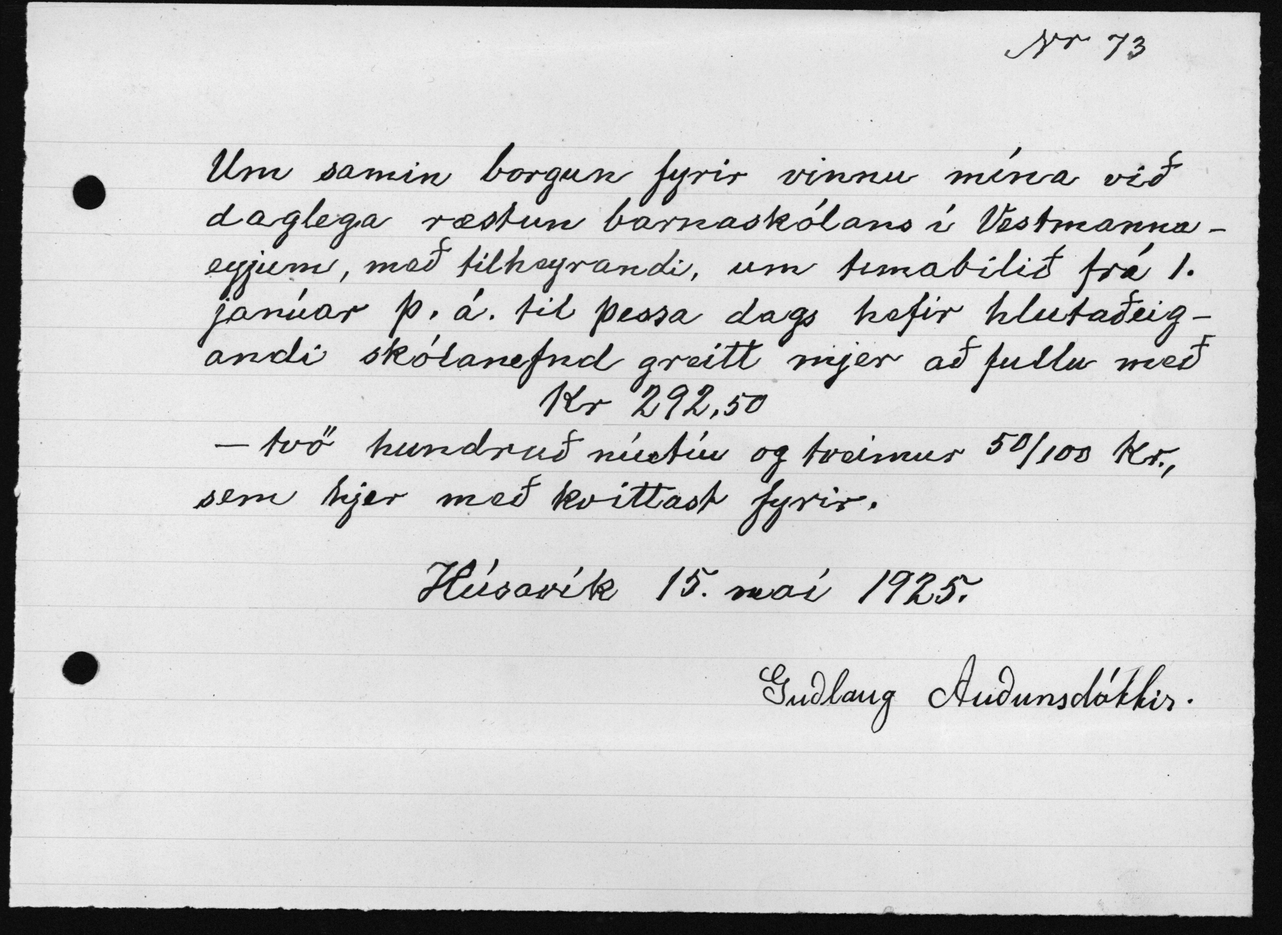 Nr 73
Um samin borgun fyrir vinnu mína við
daglega ræstun barnaskólans í Vestmanna-
eyjum, með tilheyrandi, um tímabilið frá 1.
janúar þ. á. til þessa dags hefir hlutaðeig-
andi skólanefnd greitt mjer að fullu með
Kr 292,50
— tvö hundruð níutíu og tveimur 50/100 Kr.,
sem hjer með kvittast fyrir.
Húsavík 15. maí 1925.
Guðlaug Auðunsdóttir.